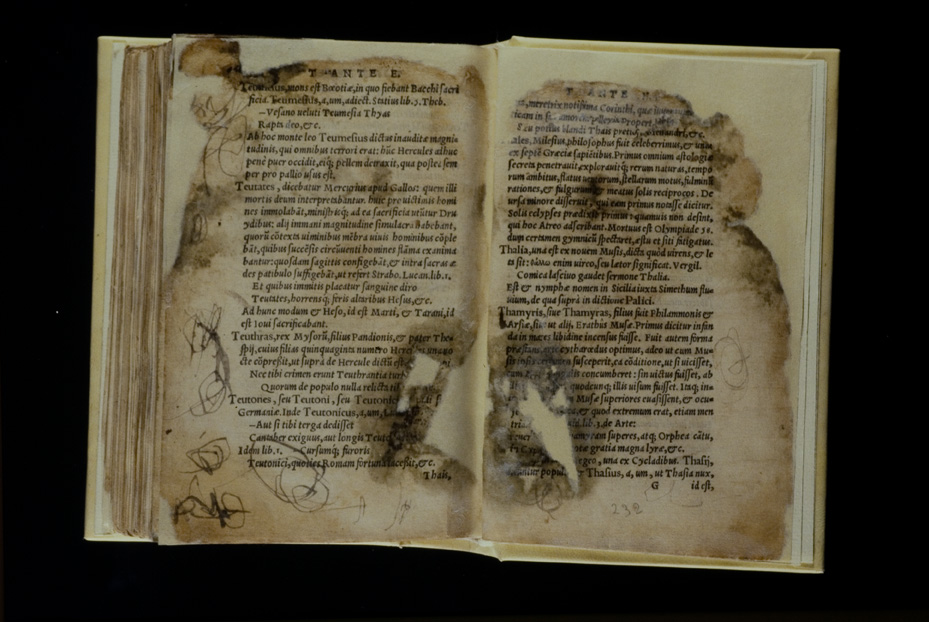 T ANTE E.
Teumesius, mons est Bœotiæ, in quo fiebant Bacchi sacri
ficia. Teumessius, a, um, adiect. Statius lib. 3. Theb.
—Vesano veluti Teumesia Thyas
Rapta deo, &c.
Ab hoc monte leo Teumesius dictus inauditæ magni-
tudinis, qui omnibus terrori erat: hūc Hercules adhuc
penè puer occidit, eiq; pellem detraxit, qua postea sem
per pro pallio usus est.
Teutates, dicebatur Mercurius apud Gallos: quem illi
mortis deum interpretabantur. huic pro uictimis homi
nes immolabāt, ministrisq; ad ea sacrificia utūtur Dru
ydibus: alij immani magnitudine simulacra habebant,
quorū cōtexta uiminibus mēbra uiuis hominibus cōple
bāt, quibus succēsis circūuenti homines flāma exanima
bantur: quosdam sagittis configebāt, & intra sacras æ
der patibulo suffigebāt, ut refert Strabo. Lucan. lib. 1.
Et quibus immitis placatur sanguine diro
Teutates, horrensq; feris altaribus Hesus, &c.
Ad hunc modum & Heso, id est Marti, & Tarani, id
est Ioui sacrificabant.
Teuthras, rex Mysorū, filius Pandionis, & pater The-
spij, cuius filias quinquaginta numero Hercules una no
cte cōpressit, ut supra de Hercule dictū est
Nec tibi crimen erunt Teuthrantia tur
Quorum de populo nulla relicta ti
Teutones, seu Teutoni, seu Teutonici
Germaniæ. Inde Teutonicus, a, um,
—Aut si tibi terga dedisset
Cantaber exiguus, aut longis Teuto
Idem lib. 1. —Cursumq; furoris
Teutonici, quoties Romam fortuna lacessit, &c.
Thais,
T ANTE
meretrix notissima Corinthi, quæ
icam in se amore pellexit. Propert.
Seu potius blandi Thais pretiosa Menandri, &c.
ales, Milesius, philosophus fuit celeberrimus, & unus
ex septē Græciæ sapiētibus. Primus omnium astrologiæ
secreta penetrauit, explorauitq; rerum naturas, tempo
rum ambitus, flatus uentorum, stellarum motus, fulminū
rationes, & fulgurum & meatus solis reciprocos. De
ursa minore disseruit, qui eam primus notasse dicitur.
Solis eclypses prædixit primus: quamuis non desint,
qui hoc Atreo adscribant. Mortuus est Olympiade 58.
dum certamen gymnicū spectaret, æstu et siti fatigatus.
Thalia, una est ex nouem Musis, dicta quòd uirens, & le
ta sit: θάλλω enim uireo, seu lætor significat. Vergil.
Comica lasciuo gaudet sermone Thalia.
Est & nymphæ nomen in Sicilia iuxta Simethum flu-
uium, de qua supra in dictione Palici.
Thamyris, siue Thamyras, filius fuit Philammonis &
Arsiæ, siue ut alij, Erathus Musæ. Primus dicitur infan
da in mares libidine incensus fuisse. Fuit autem forma
præstanti, & cytharœdus optimus, adeo ut cum Mu-
susceperit, ea cōditione, ut si uicisset,
concumberet: sin uictus fuisset, ab
quodcunq; illis uisum fuisset. Itaq; in-
Musæ superiores euasissent, & ocu-
& quod extremum erat, etiam men
lib. 3. de Arte:
superes, atq; Orphea cātu,
gratia magna lyræ, &c.
Aegeo, una ex Cycladibus. Thasij,
popul. Thasius, a, um, ut Thasia nux,
G id est,
232